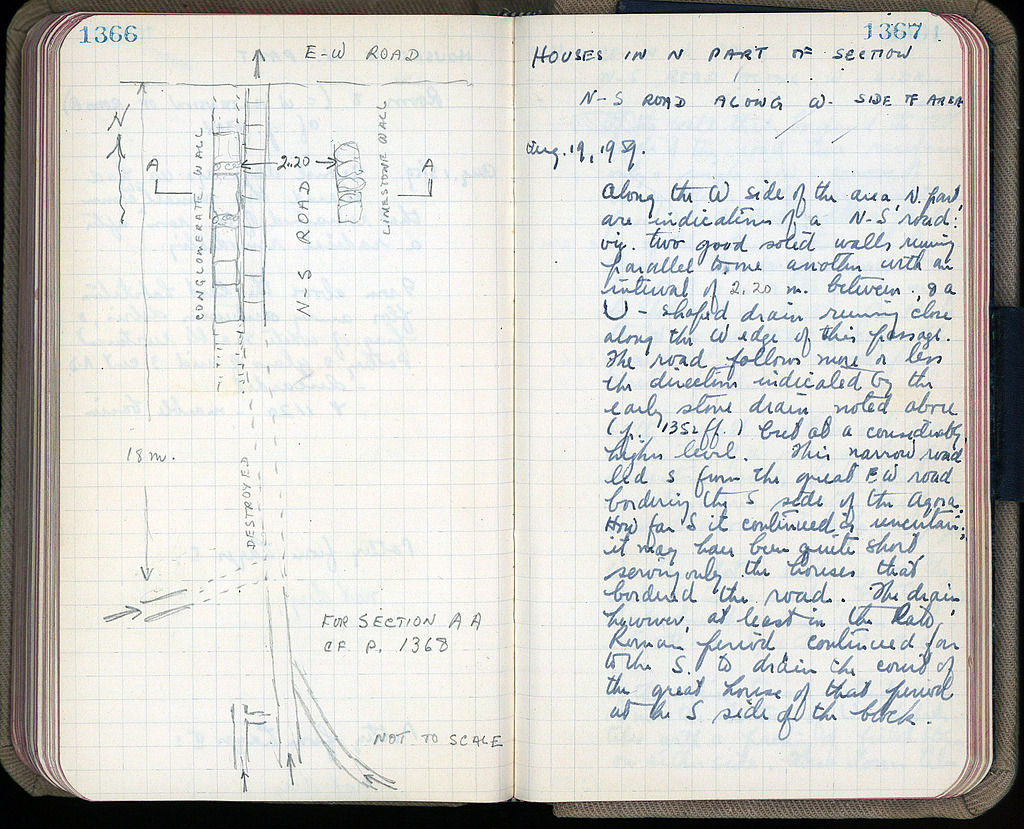 1366
E-W ROAD
N
A
A
2.20
CONGLOMERATE WALL
N-S ROAD
LIMESTONE WALL
18 m.
DESTROYED
FOR SECTION A A
CF P. 1368
NOT TO SCALE
1367
HOUSES IN N PART OF SECTION
N-S ROAD ALONG W. SIDE OF AREA
Aug. 19, 1959.
Along the W side of the area, N. part,
are indications of a N-S road:
viz. two good solid walls running
parallel to one another with an
interval of 2.20 m. between, & a
U-shaped drain running close
along the W edge of this passage.
The road follows more or less
the direction indicated by the
early stone drain noted above
(p. 1352 ff.) but at a considerably
higher level. This narrow road
led S from the great EW road
bordering the S side of the Agora.
How far S it continued is uncertain;
it may have been quite short,
serving only the houses that
bordered the road. The drain
however, at least in the Late
Roman period continued far
to the S. to drain the court of
the great house of that period
at the S side of the block.